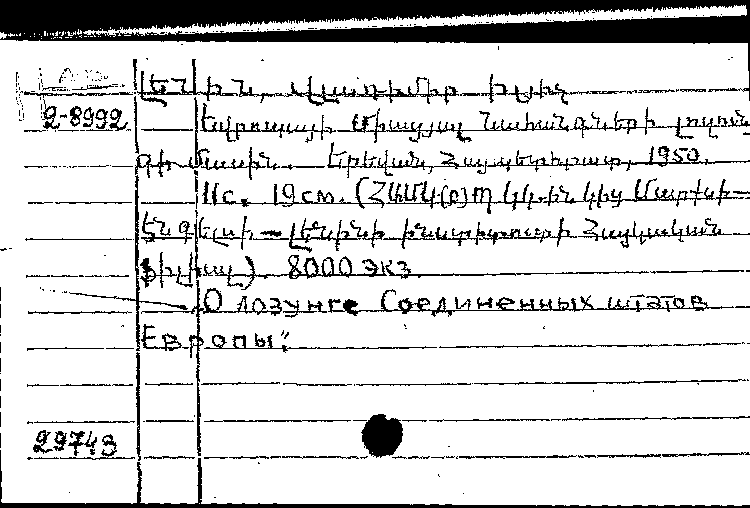 Լենին, Վլադիմիր Իլյիչ
2-8992 Եվրոպայի Միացյալ Նահանգների լոզուն-
գի մասին. Երեվան, Հայպետհրատ, 1950.
11с. 19см. (ՀԱՄԿ(բ)Պ Կկ.ին կից Մարքսի-
Էնգելսի-Լենինի ինստիտուտի Հայկական
ֆիլիալ). 8000 экз.
„О лозунге Соединенных штатов
Европы“.
29743